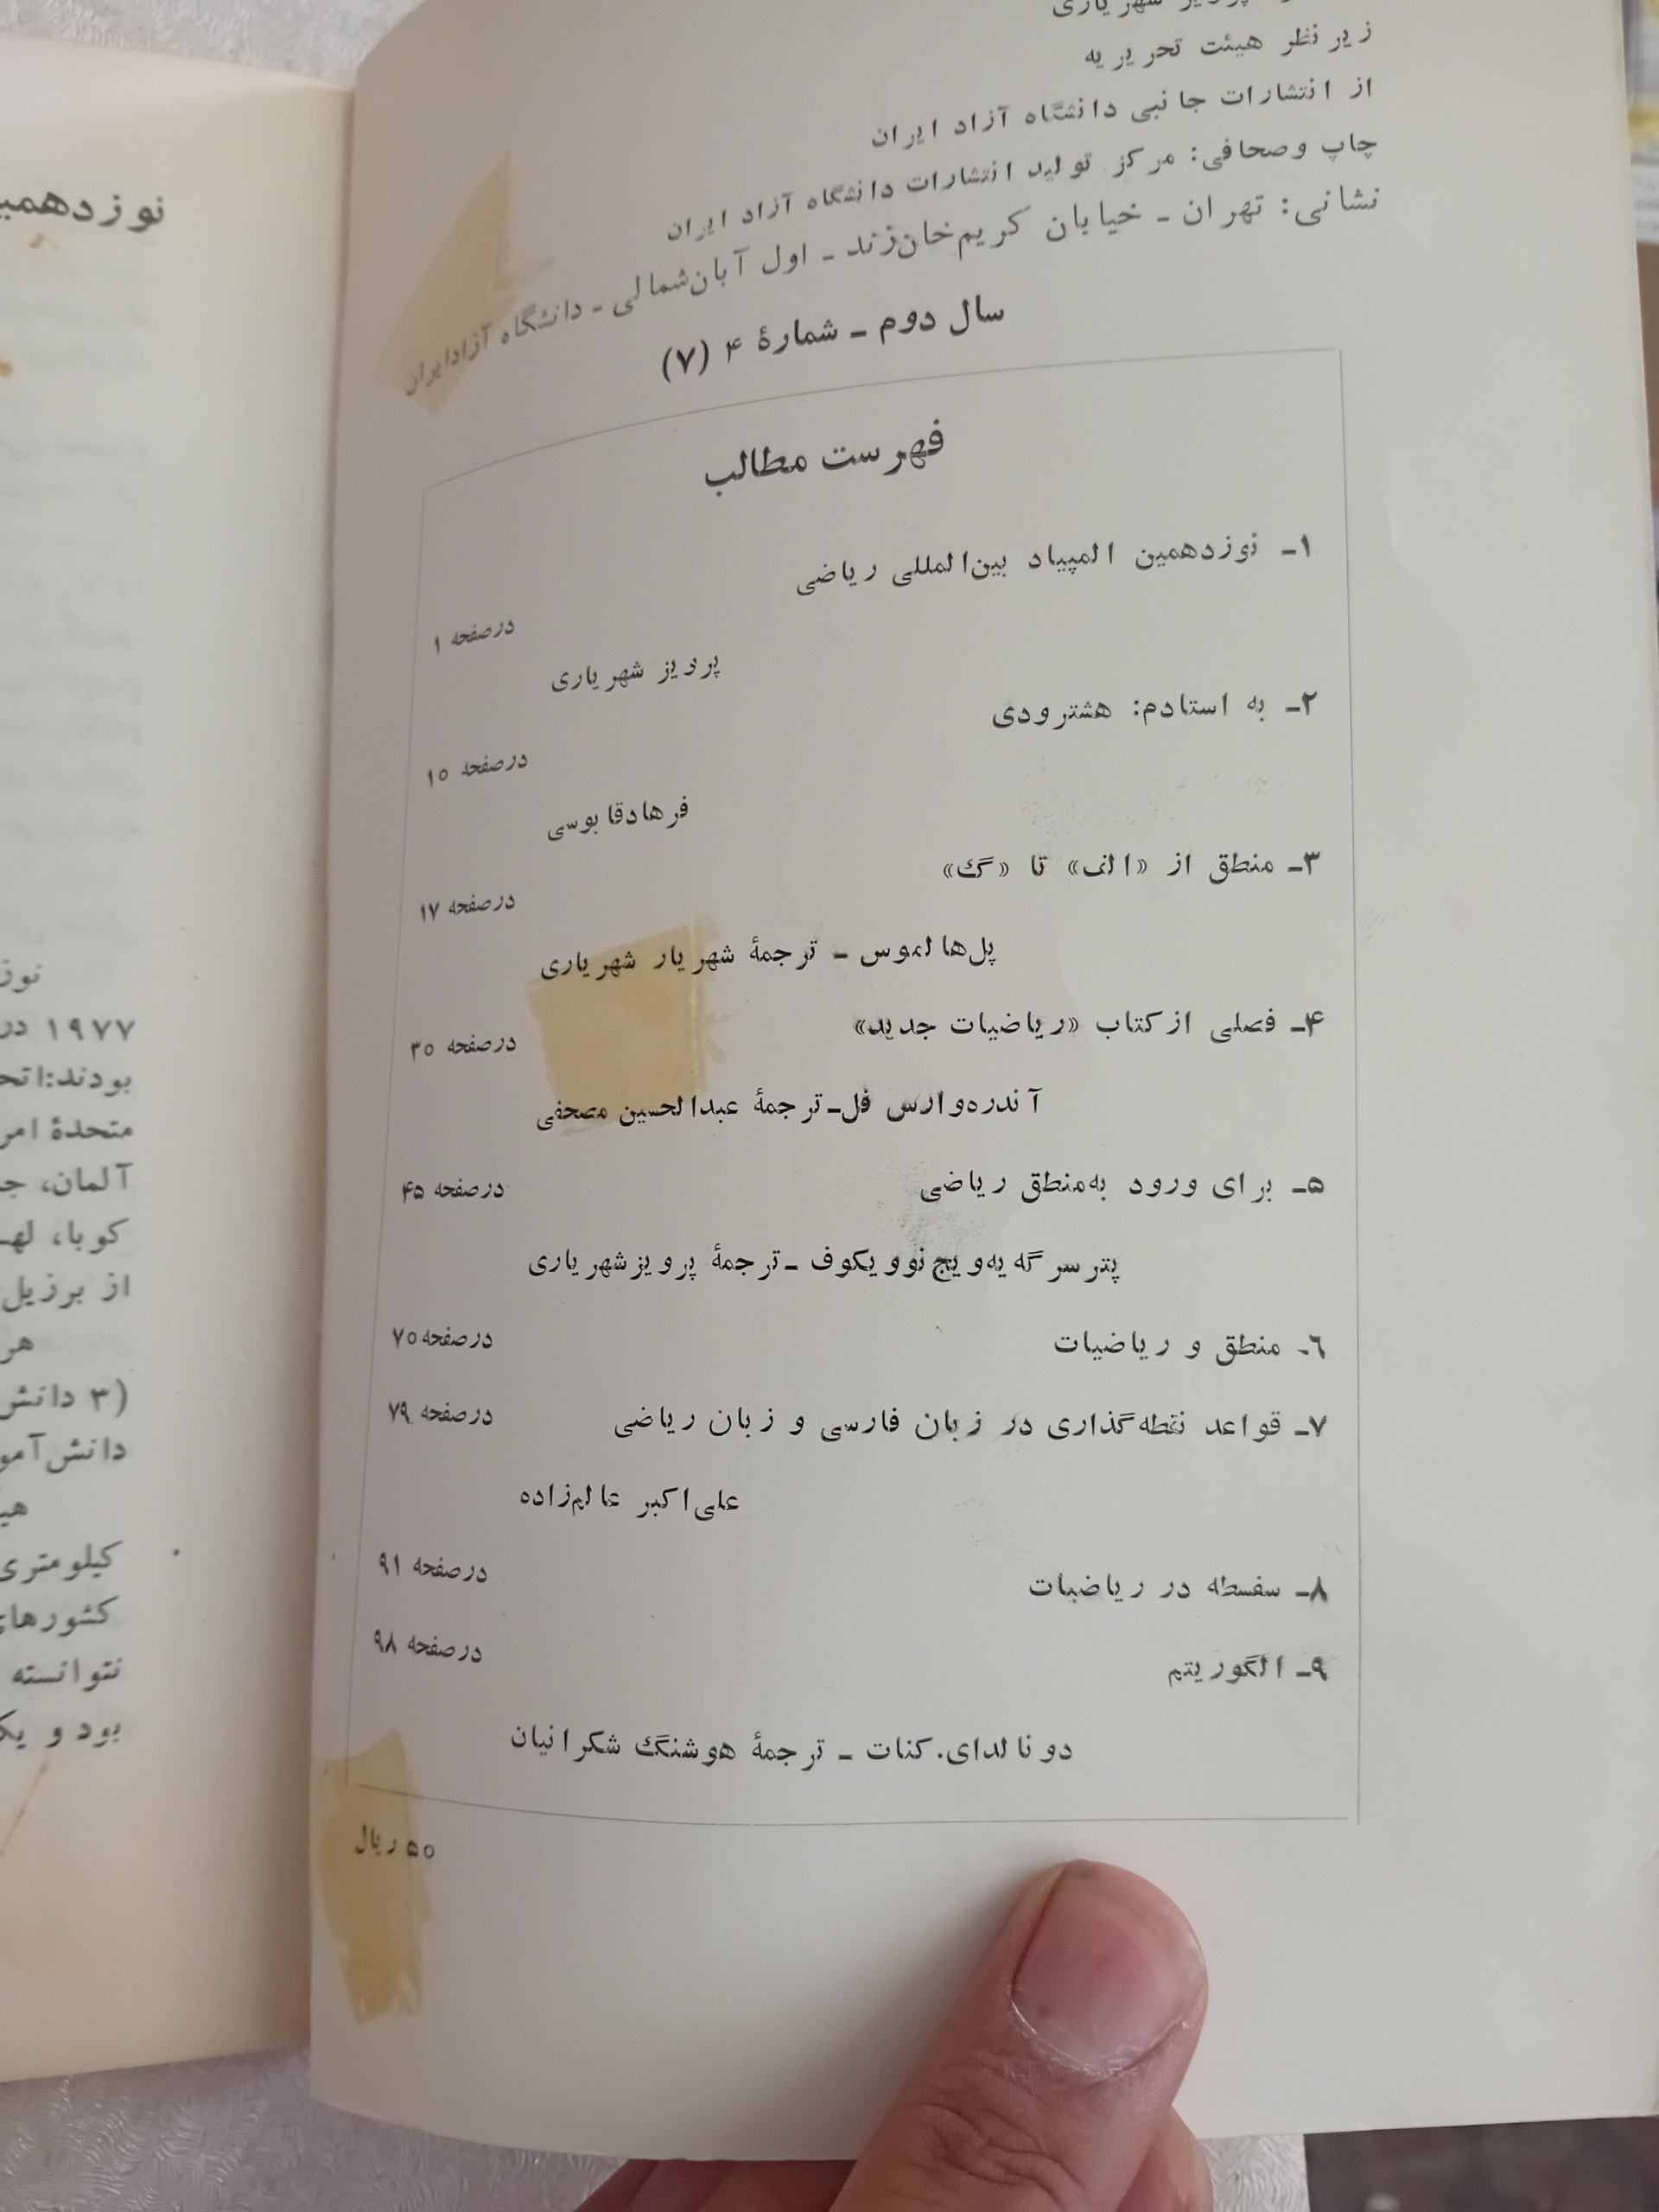 شهریاری
زیر نظر هیئت تحریریه
از انتشارات جانبی دانشگاه آزاد ایران
چاپ وصحافی: مرکز تولید انتشارات دانشگاه آزاد ایران
نشانی: تهران ـ خیابان کریم‌خان‌زند ـ اول آبان‌شمالی ـ دانشگاه آزادایران
سال دوم ـ شمارهٔ ۴ (۷)
فهرست مطالب
۱ـ نوزدهمین المپیاد بین‌المللی ریاضی
درصفحه ۱
پرویز شهریاری
۲ـ به استادم: هشترودی
درصفحه ۱۵
فرهادقابوسی
۳ـ منطق از «الف» تا «گ»
درصفحه ۱۷
پل‌هالموس ـ ترجمهٔ شهریار شهریاری
۴ـ فصلی ازکتاب «ریاضیات جدید»
درصفحه ۳۰
آندره‌وارس فل‌ـ ترجمهٔ عبدالحسین مصحفی
۵ـ برای ورود به‌منطق ریاضی
درصفحه ۴۵
پترسرگه‌یه‌ویچ نوویکوف ـ ترجمهٔ پرویزشهریاری
۶ـ منطق و ریاضیات
درصفحه ۷۰
۷ـ قواعد نقطه‌گذاری در زبان فارسی و زبان ریاضی
درصفحه ۷۹
علی‌اکبر عالم‌زاده
۸ـ سفسطه در ریاضیات
درصفحه ۹۱
۹ـ الگوریتم
درصفحه ۹۸
دونالدای.کنات ـ ترجمهٔ هوشنگ شکرانیان
۵۰ ریال
نوزدهمین
۱۹۷۷ در
بودند:
متحدهٔ
آلمان،
کوبا،
از برزیل
هر
(۳
کیلومتری
نتوانسته
بود و